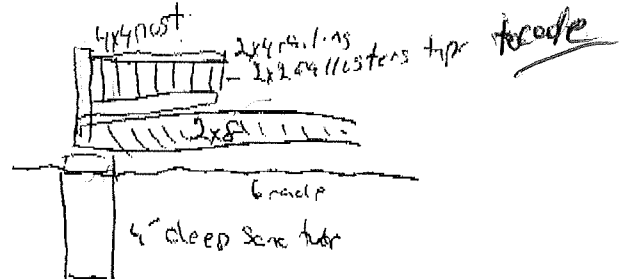 4x4 post
2x4 railing
2x2 ballusters typ to code
2x8
Grade
4' deep sono tube